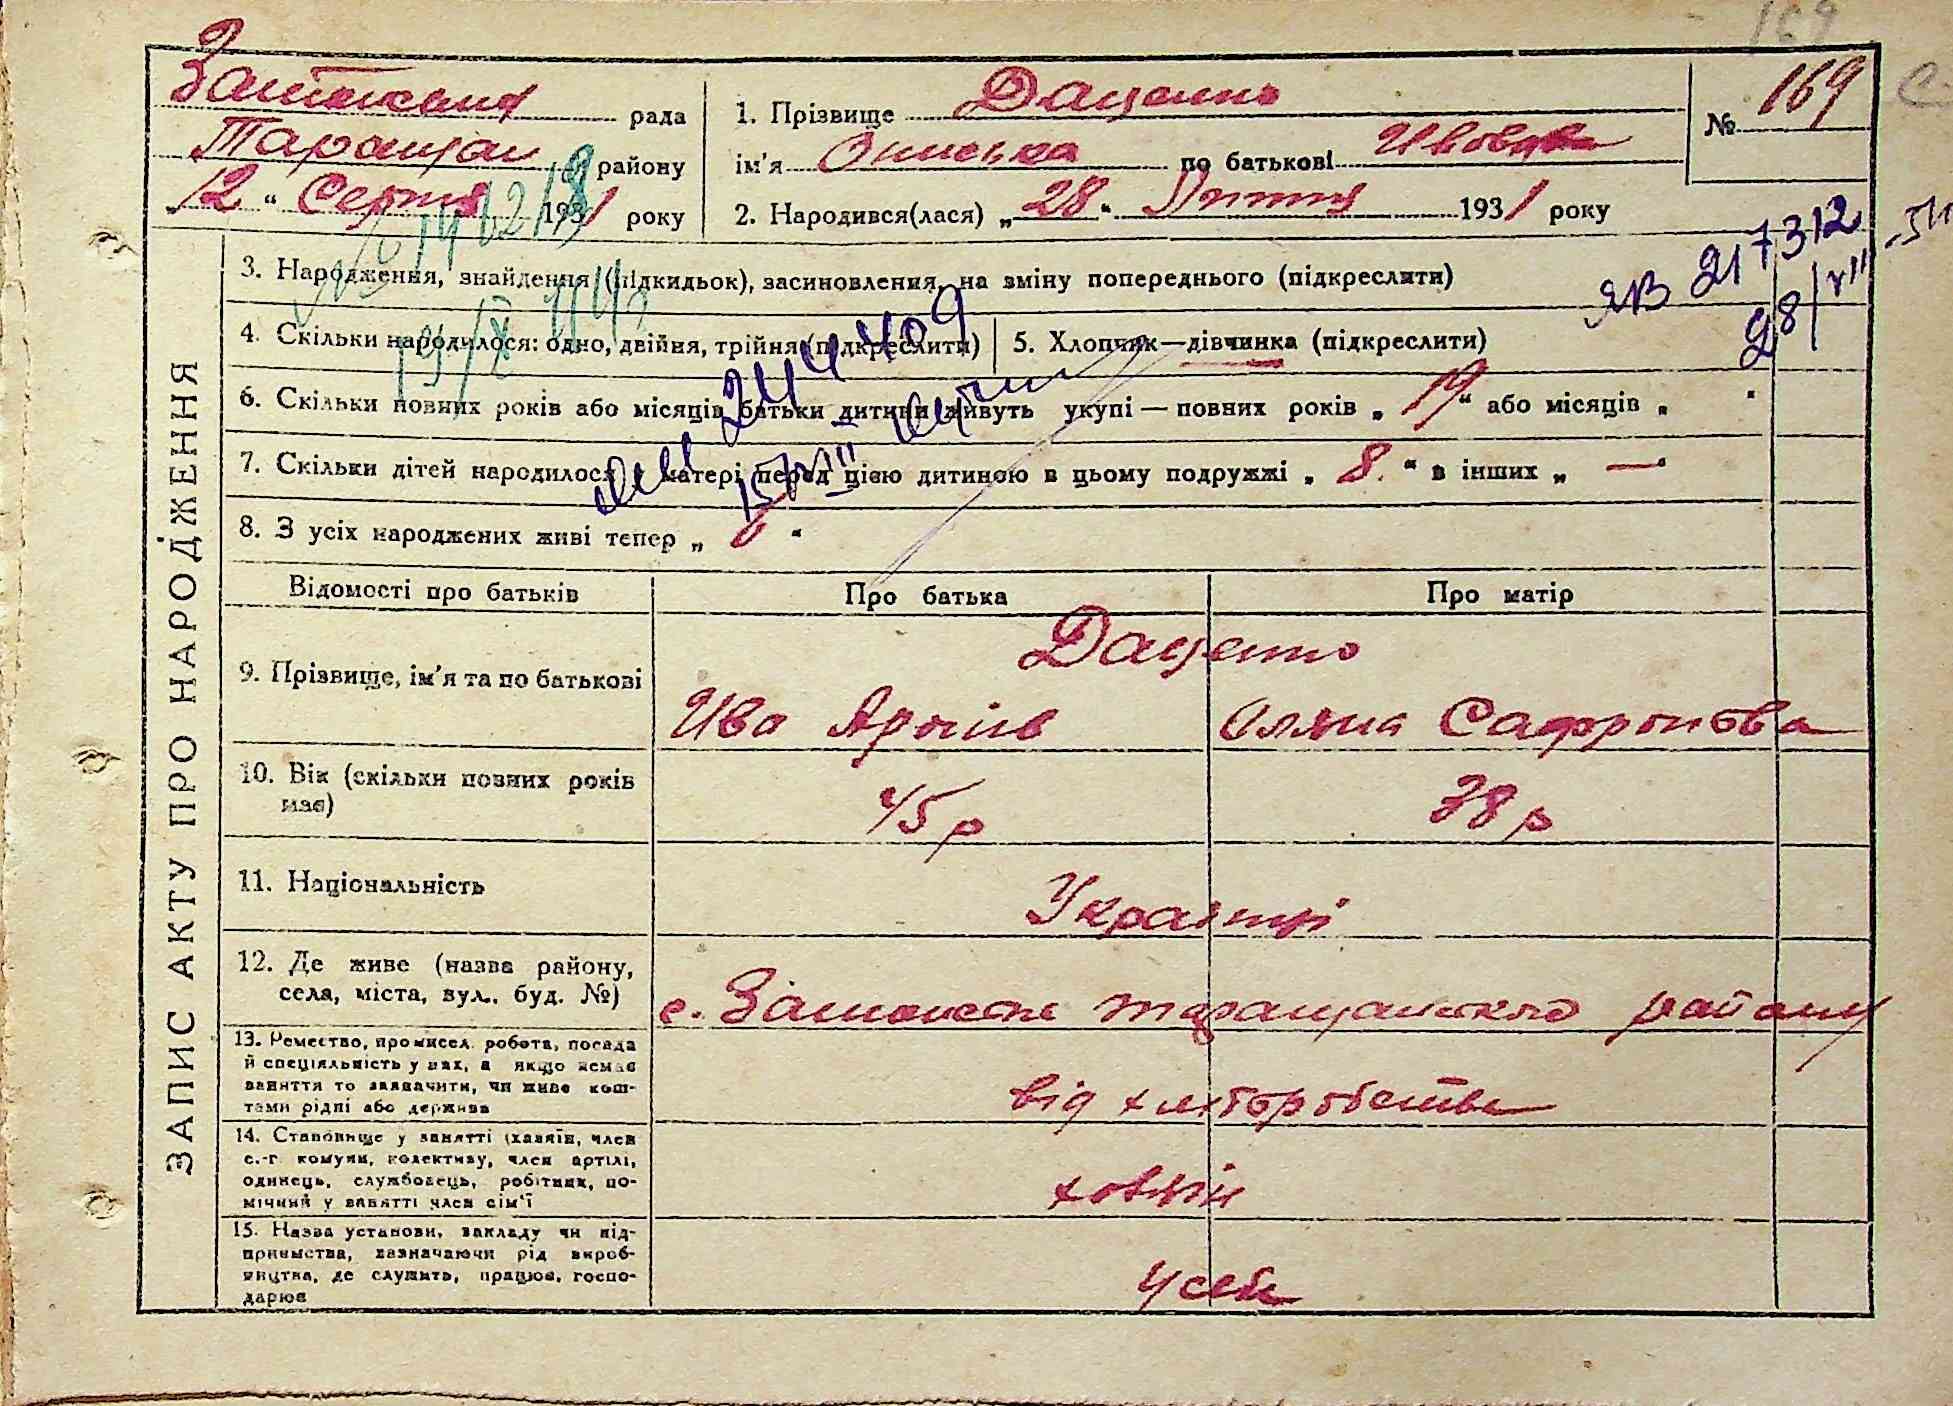 169
рада
Таращан району
12 " Серпня 1931 року
1. Прізвище Даценко
ім'я Ониська по батькові
2. Народився(лася) „ 28 " Липня 1931 року
№ 169
ЗАПИС АКТУ ПРО НАРОДЖЕННЯ
3. Народження, знайдення (підкидьок), засиновлення, на зміну попереднього (підкреслити)
ЯВ 217312
28/VIII-51
4. Скільки народилося: одно, двійня, трійня (підкреслити)
5. Хлопчик—дівчинка (підкреслити)
6. Скільки повних років або місяців батьки дитини живуть укупі — повних років „ 19 " або місяців „ "
7. Скільки дітей народилося матері перед цією дитиною в цьому подружжі „ 8. " в інших „ — "
8. З усіх народжених живі тепер „ 6 "
Відомості про батьків
Про батька
Про матір
9. Прізвище, ім'я та по батькові
Даценко
Ива Архипів
Оляна Сафронова
10. Вік (скільки повних років має)
45 р
38 р
11. Національність
Українці
12. Де живе (назва району, села, міста, вул., буд. №)
с. Таращанського району
13. Ремество, промисел, робота, посада й спеціяльність у них, а якщо немає заняття то зазначити, чи живе коштами рідні або держава
від хліборобства
14. Становище у занятті (хазяїн, член с.-г. комуни, колективу, член артілі, одинець, службовець, робітник, помічний у занятті член сім'ї
ховяін
15. Назва установи, закладу чи підприємства, зазначаючи рід виробництва, де служить, працює, господарює
у себе